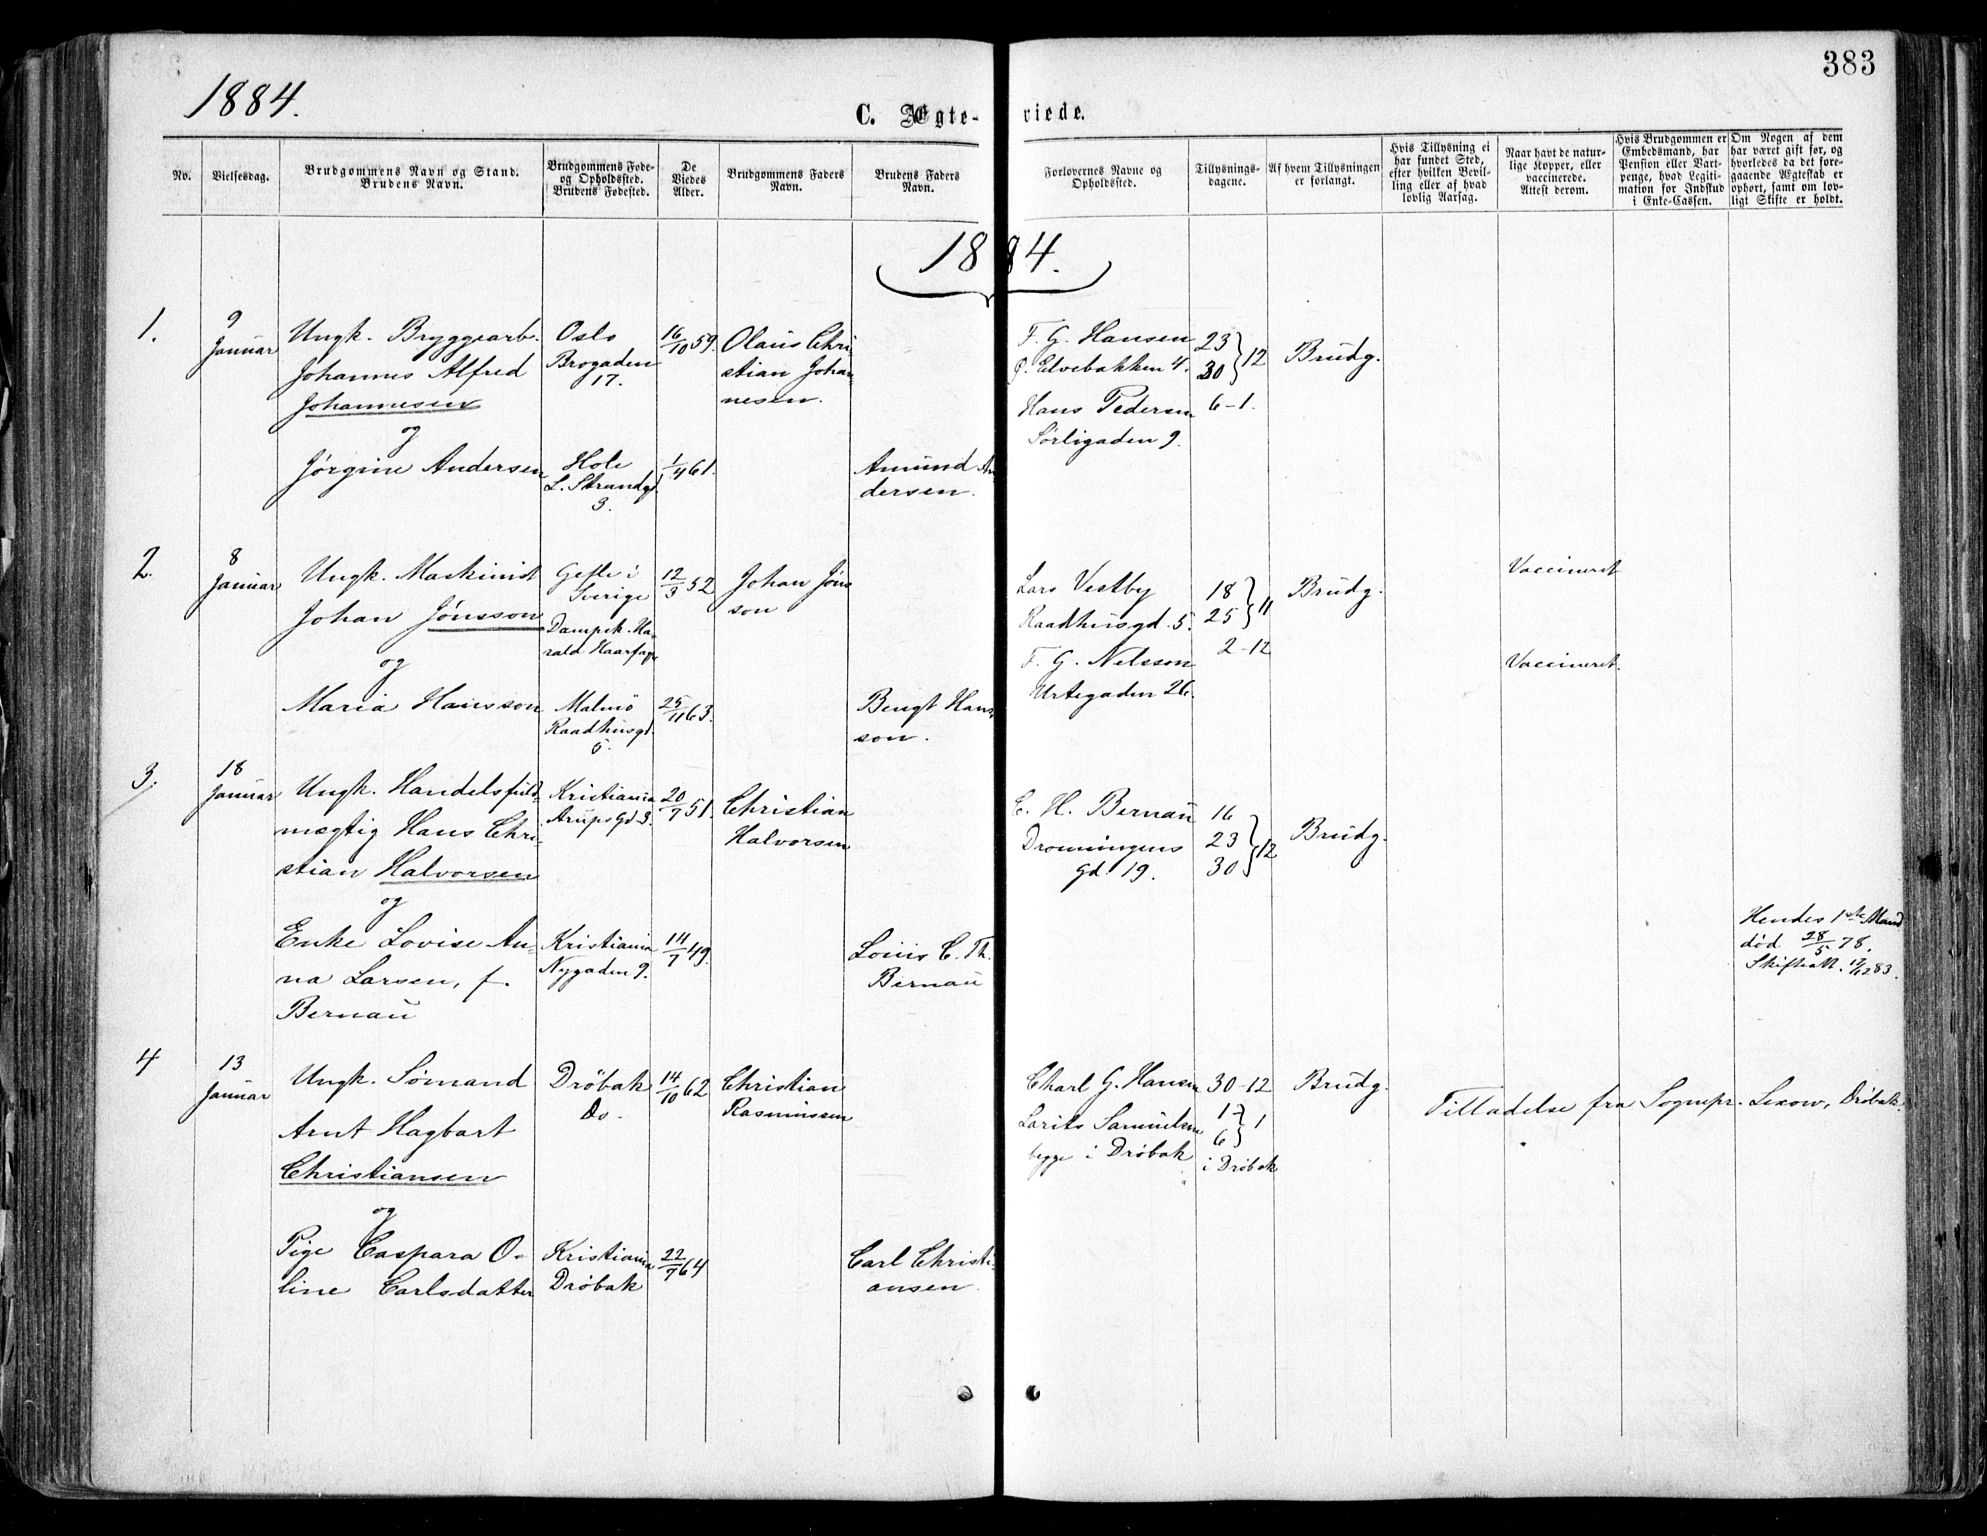 383
1884.
C. Ægte-viede.
No.
Vielsesdag.
Brudgommens Navn og Stand.
Brudens Navn.
Brudgommens Føde-
og Opholdssted.
Brudens Fødested.
De
Viedes
Alder.
Brudgommens Faders
Navn.
Brudens Faders
Navn.
Forlovernes Navne og
Opholdssted.
Tillysnings-
dagene.
Af hvem Tillysningen
er forlangt.
Hvis Tillysning ei
har fundet Sted,
efter hvilken Bevil-
ling eller af hvad
lovlig Aarsag.
Naar havt de natur-
lige Kopper, eller
vaccinerede.
Attest derom.
Hvis Brudgommen er
Embedsmand, har
Pension eller Vart-
penge, hvad Legiti-
mation for Indskud
i Enke-Cassen.
Om Nogen af dem
har været gift før, og
hvorledes da det fore-
gaaende Ægteskab er
ophørt, samt om lov-
ligt Skifte er holdt.
1884.
1.
9
Januar
Ungk. Bryggearb.
Johannes Alfred
Johannesen
og
Jørgine Andersen
Oslo
Brogaden
17.
Hole
L. Strandgd.
3.
16/10 59.
1/4 61.
Olaus Chri-
stian Johan-
nesen.
Amund An-
dersen.
F. G. Hansen
Ø. Elvebakken 4.
Hans Pedersen
Sørligaden 9.
23
30 } 12
6-1.
Brudg.
2.
8
Januar
Ungk. Maskinist
Johan Jönsson
og
Maria Hansson
Gefle i
Sverige
Dampsk. Ha-
rald Haarfage
Malmö
Raadhusgd.
5.
12/3 52
25/11 63.
Johan Jöns-
son
Bengt Hans-
son.
Lars Vestby
Raadhusgd. 5.
F. G. Nelsson
Urtegaden 26.
18
25 } 11
2-12
Brudg.
Vaccineret
Vaccineret.
3.
18
Januar
Ungk. Handelsfuld-
mægtig Hans Chri-
stian Halvorsen
og
Enke Lovise An-
na Larsen, f.
Bernau
Kristiania
Arups Gd 3.
Kristiania
Nygaden 9.
20/7 51.
14/7 49.
Christian
Halvorsen
Louis C. Th.
Bernau
C. H. Bernau
Dronningens
Gd. 19.
16
23
30 } 12
Brudg.
Hendes 1ste Mand
død 28/5 78.
Skifteatt. 17/12 83.
4
13
Januar
Ungk. Sømand
Arnt Hagbart
Christiansen
og
Pige Caspara O-
line Carlsdatter
Drøbak
Do.
Kristiania
Drøbak
14/10 62
22/7 64
Christian
Rasmussen
Carl Christi-
ansen.
Charl G. Hansen
Larits Samuelsen
begge i Drøbak
30-12
1
6 } 1
i Drøbak
Brudg.
Tilladelse fra Sognepr. Lexow, Drøbak.